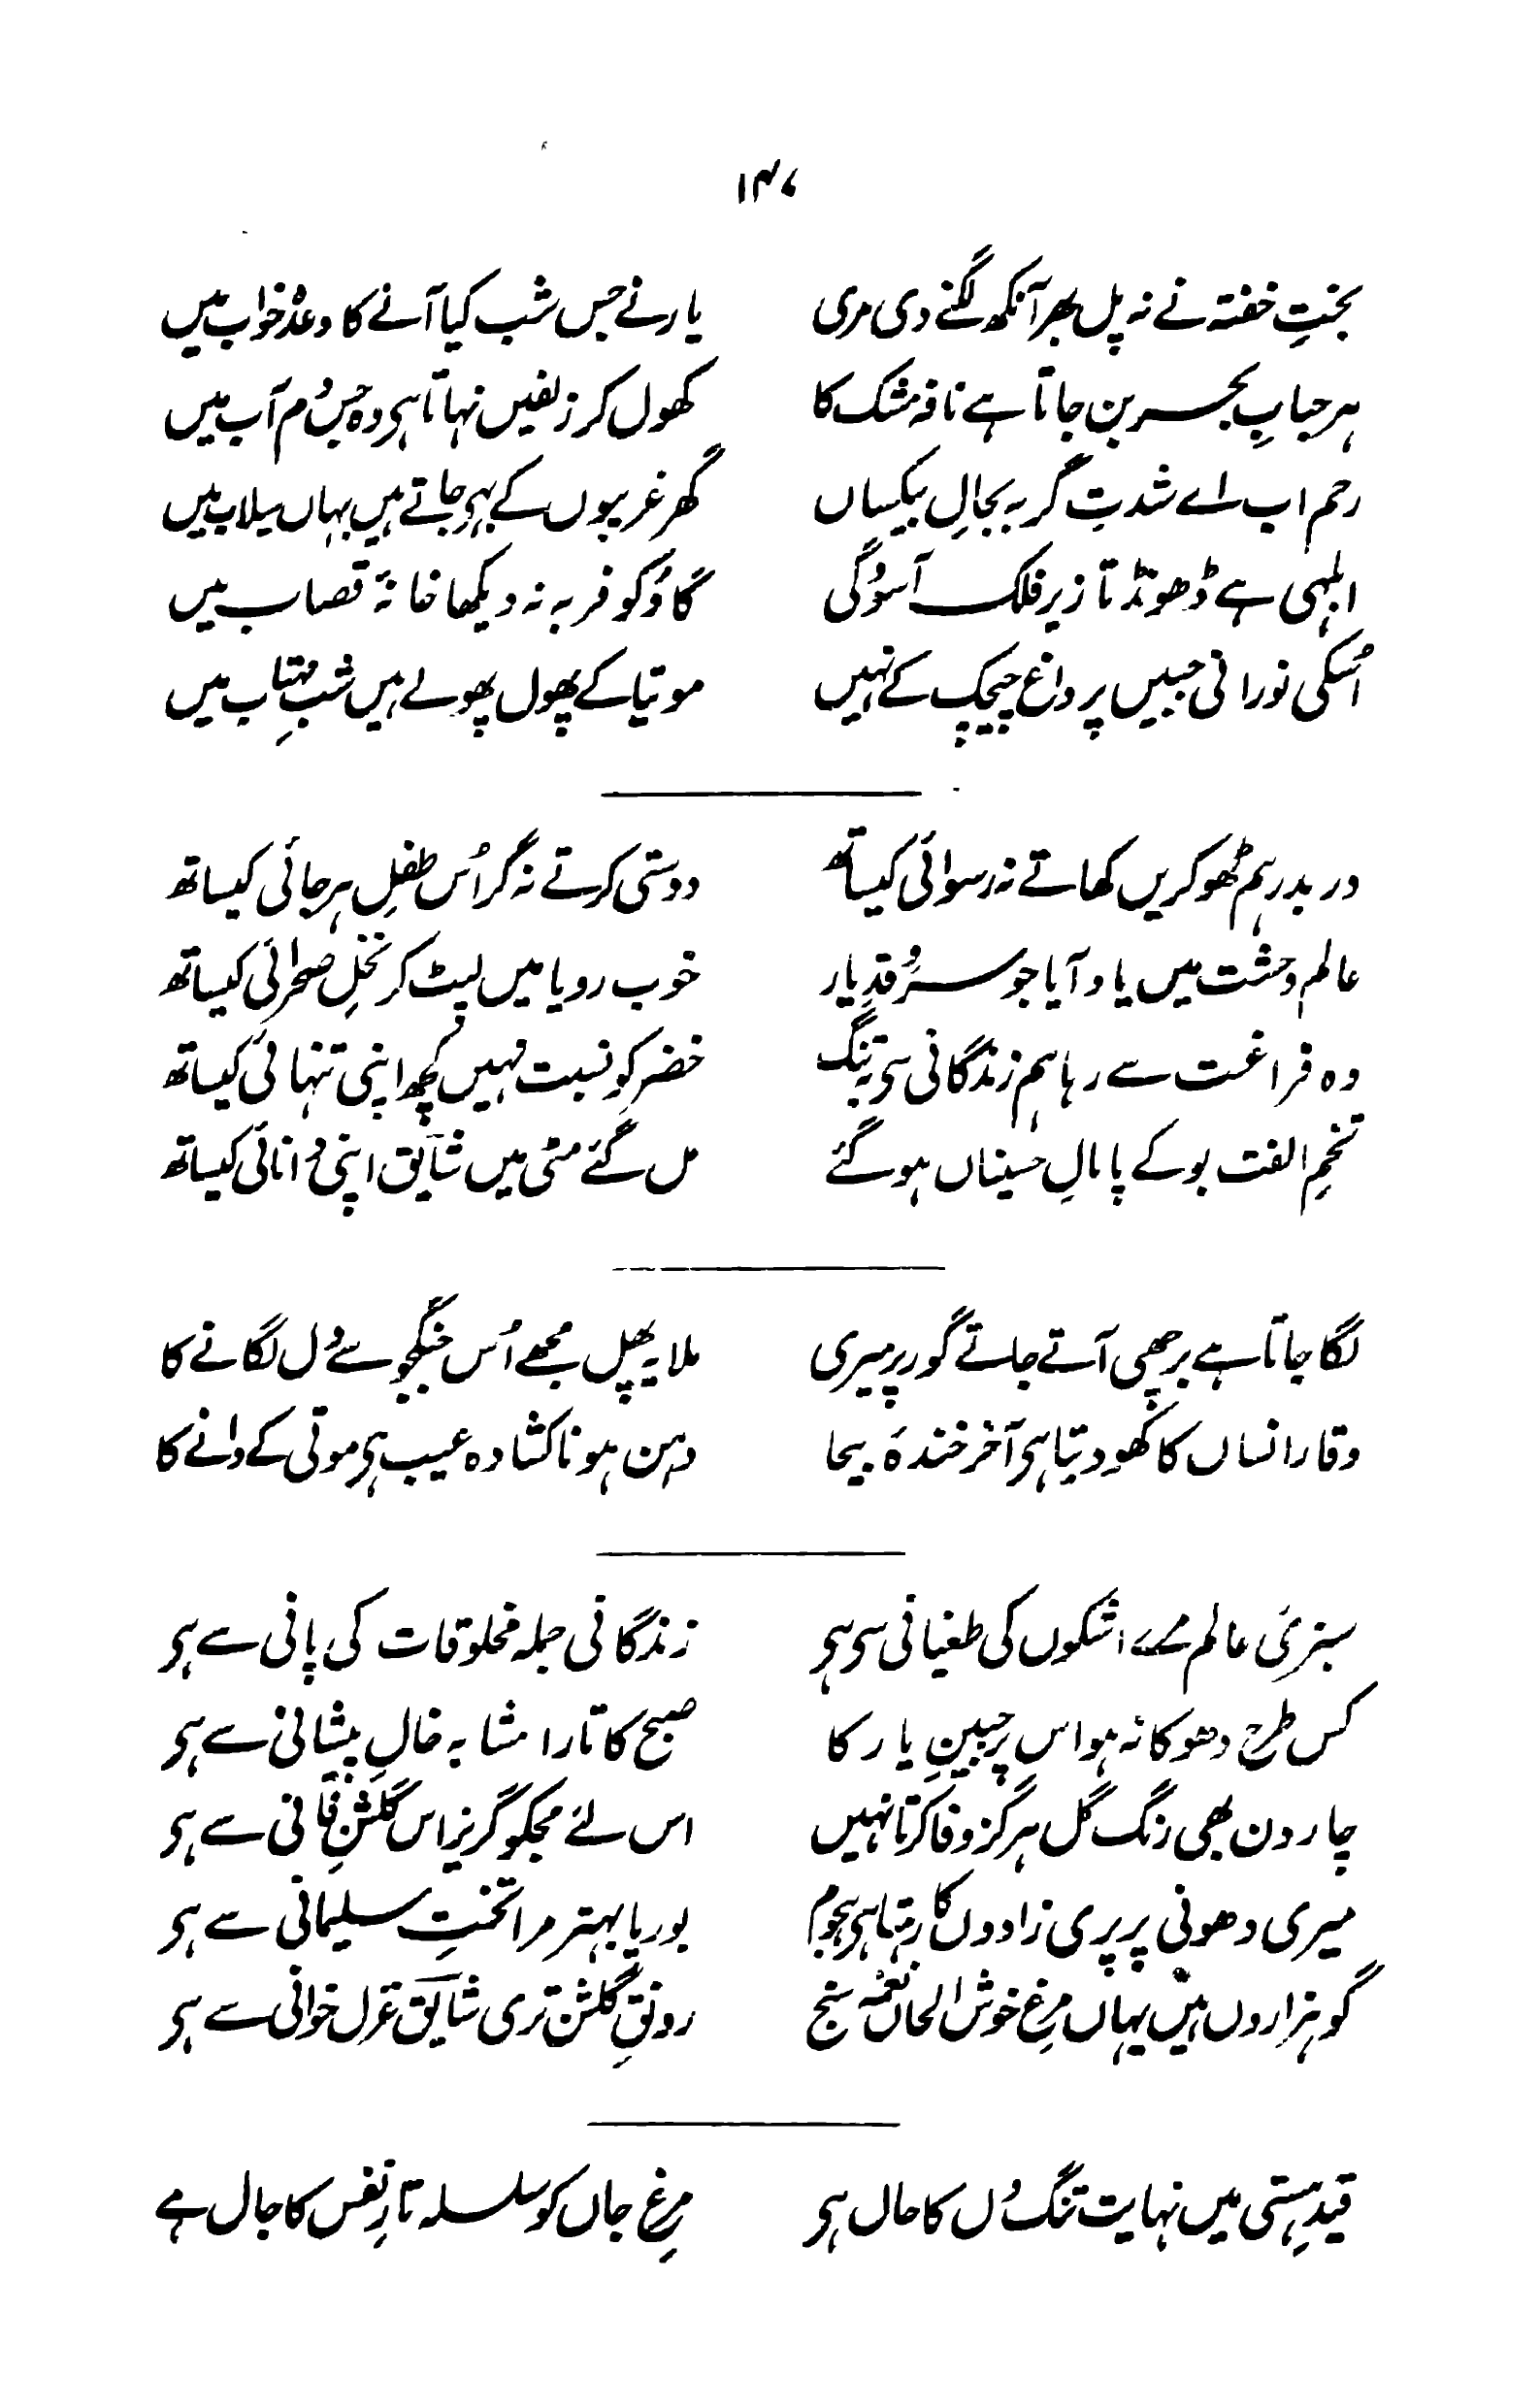 ۱۴۷
بختِ خفتہ نے نہ پل بھر آنکھ لگنے دی مری یار نے جس شب کیا آنے کا وعدہ خواب میں
ہر حبابِ بحر بن جاتا ہے نافہ مشک کا کھول کر زلفیں نہاتا ہی وہ جس دم آب میں
رحم اب اے شدتِ گریہ بحالِ بیکساں گھر غریبوں کے بہے جاتے ہیں یہاں سیلاب میں
ابلہی ہے ڈھونڈتا زیر فلک آسودگی گاؤ کو فربہ نہ دیکھا خانۂ قصاب میں
اُسکی نورانی جبیں پر داغ چیچک کے نہیں موتیا کے پھول پھولے ہیں شبِ مہتاب میں
در بدر ہم ٹھوکریں کھاتے نہ رسوائی کیساتھ دوستی کرتے نہ گر اُس طفلِ ہرجائی کیساتھ
عالم وحشت میں یاد آیا جو سروِ قدِ یار خوب رویا میں لپٹ کر نخلِ صحرائی کیساتھ
وہ فراغت سے رہا ہم زندگانی سی تنگ خضر کو نسبت نہیں کچھ اپنی تنہائی کیساتھ
تخمِ الفت بو کے پامالِ حسیناں ہو گئے مل گئے مٹی میں شایق اپنی دانائی کیساتھ
لگا جاتا ہے برچھی آتے جاتے گور پر میری ملا یہ پھل مجھے اُس جنگجو سے دل لگانے کا
وقار انساں کا کھو دیتا ہی آخر خندۂ بیجا دہن ہونا کشادہ عیب ہی موتی کے دانے کا
سبزیٔ عالم مرے اشکوں کی طغیانی سی ہی زندگانی جملہ مخلوقات کی پانی سے ہی
کس طرح دھوکا نہ ہو اس پر جبینِ یار کا صبح کا تارا مشابہ خالِ پیشانی سے ہی
چار دن بھی رنگ گل ہرگز وفا کرتا نہیں اس لئے مجکو گریز اس گلشنِ فانی سے ہی
میری دھونی پر پری زادوں کا رہتا ہی ہجوم بوریا بہتر مرا تختِ سلیمانی سے ہی
گو ہزاروں ہیں یہاں مرغِ خوش الحاں نغمہ سنج رونقِ گلشن تری شایق غزل خوانی سے ہی
قیدِ ہستی میں نہایت تنگ دل کا حال ہی مرغِ جاں کو سلسلہ تارِ نفس کا جال ہے